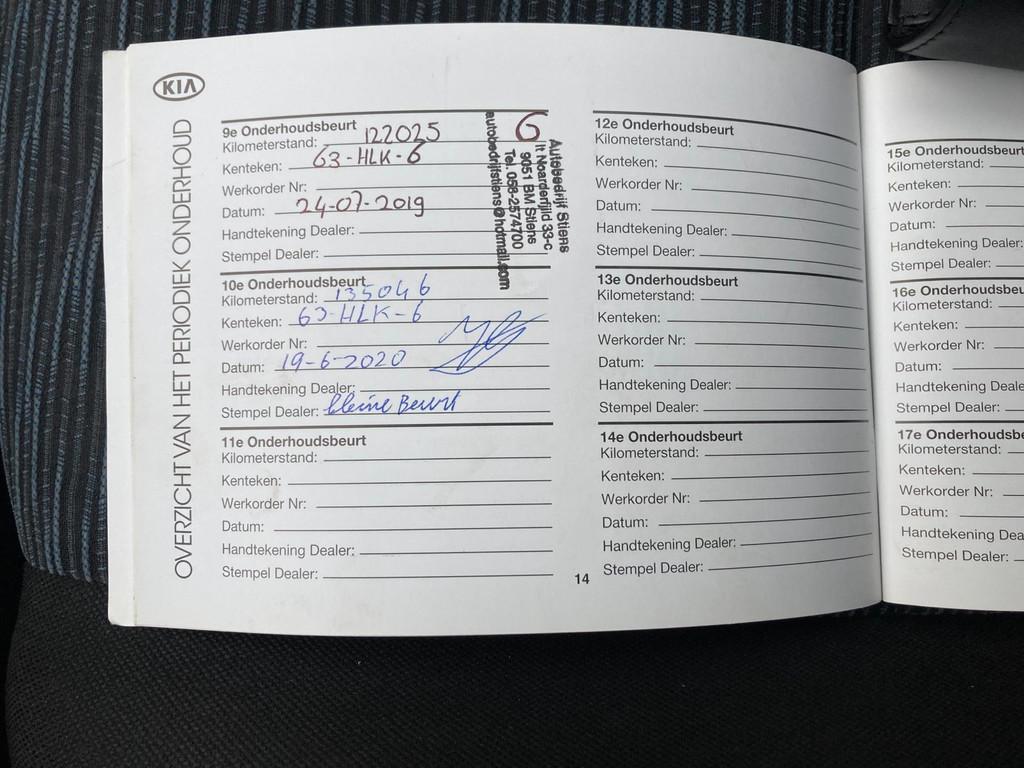 KIA
OVERZICHT VAN HET PERIODIEK ONDERHOUD
9e Onderhoudsbeurt
Kilometerstand: 122025
Kenteken: 63-HLK-6
Werkorder Nr:
Datum: 24-07-2019
Handtekening Dealer:
Stempel Dealer:
6
Autobedrijf Stiens
It Noarderfjild 33-c
9051 BM Stiens
Tel. 058-2574700
autobedrijfstiens@hotmail.com
10e Onderhoudsbeurt
Kilometerstand: 135046
Kenteken: 63-HLK-6
Werkorder Nr:
Datum: 19-6-2020
Handtekening Dealer:
Stempel Dealer: kleine Beurt
11e Onderhoudsbeurt
Kilometerstand:
Kenteken:
Werkorder Nr:
Datum:
Handtekening Dealer:
Stempel Dealer:
14
12e Onderhoudsbeurt
Kilometerstand:
Kenteken:
Werkorder Nr:
Datum:
Handtekening Dealer:
Stempel Dealer:
13e Onderhoudsbeurt
Kilometerstand:
Kenteken:
Werkorder Nr:
Datum:
Handtekening Dealer:
Stempel Dealer:
14e Onderhoudsbeurt
Kilometerstand:
Kenteken:
Werkorder Nr:
Datum:
Handtekening Dealer:
Stempel Dealer:
15e Onderhoudsbeurt
Kilometerstand:
Kenteken:
Werkorder Nr:
Datum:
Handtekening Dealer:
Stempel Dealer:
16e Onderhoudsbeu
Kilometerstand:
Kenteken:
Werkorder Nr:
Datum:
Handtekening Deale
Stempel Dealer:
17e Onderhoudsbe
Kilometerstand:
Kenteken:
Werkorder Nr:
Datum:
Handtekening Dea
Stempel Dealer: